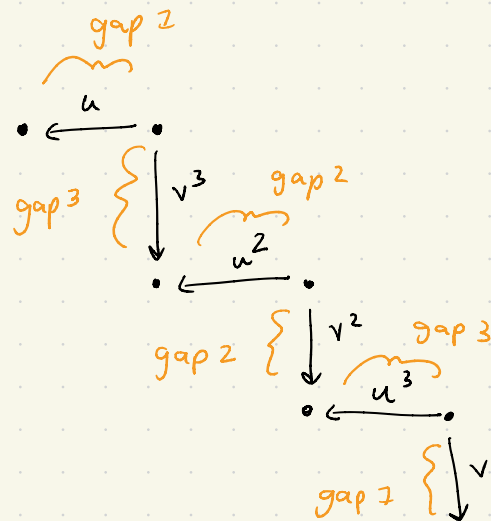 gap 1
u
gap 3
v³
gap 2
u²
gap 2
v²
gap 3
u³
gap 1
v